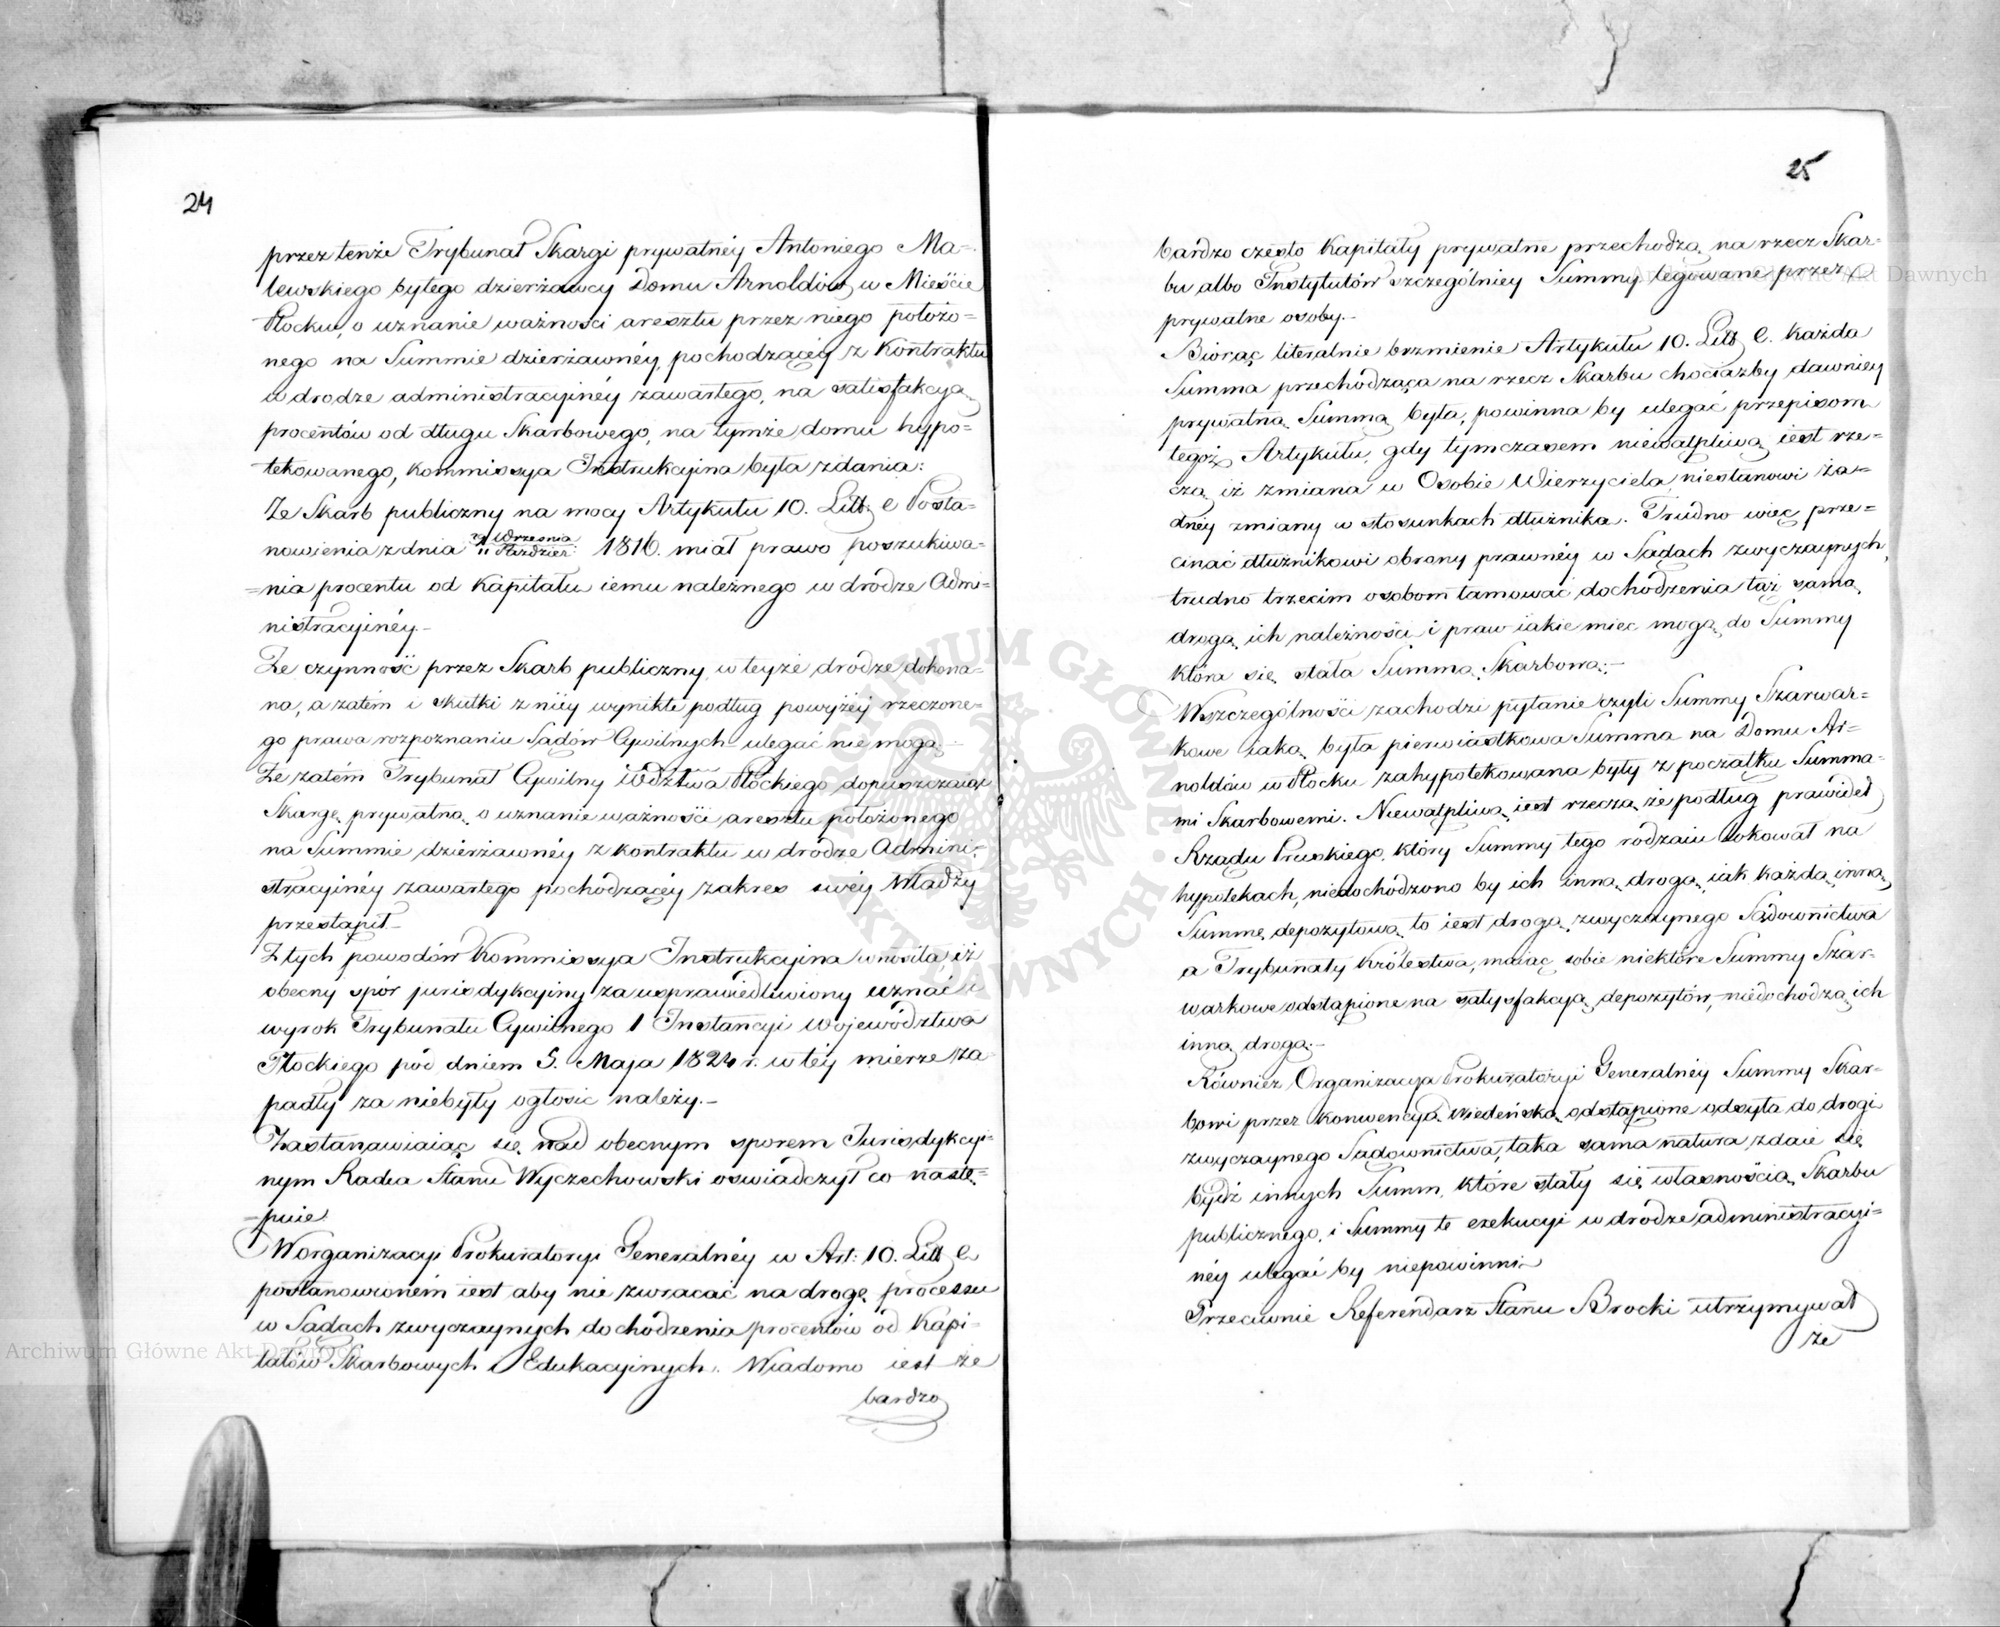 24
przez tenże Trybunał Skargi prywatnéy Antoniego Ma-
lewskiego byłego dzierżawcy Domu Arnoldów w Mieście
Płocku, o uznanie ważności aresztu przez niego położo-
nego na Summie dzierżawnéy, pochodzącéy z Kontraktu
w drodze administracyinéy zawartego, na satisfakcyą
procentów od długu Skarbowego, na tymże domu hypo-
tekowanego, Kommissya Instrukcyina była zdania:
Że Skarb publiczny na mocy Artykułu 10. Litt. e Posta-
nowienia z dnia Września 11 Paździer: 1816. miał prawo poszukiwa-
=nia procentu od Kapitału iemu należnego w drodze Admi-
nistracyinéy.-
Że czynność przez Skarb publiczny w teyże drodze dokona-
na, a zatém i skutki z niéy wynikłe podług powyżéy rzeczone-
go prawa rozpoznaniu Sądów Cywilnych ulegać nie mogą.-
Że zatém Trybunał Cywilny Wdztwa Płockiego dopuszczaiąc
Skargę prywatną o uznanie ważności aresztu położonego
na Summie dzierżawnéy z kontraktu w drodze Admini-
stracyinéy zawartego pochodzącéy zakres swéy Władzy
przestąpił.-
Z tych powodów Kommissya Instrukcyina wnosiła, iż
obecny spór jurisdykcyiny za usprawiedliwiony uznać i
wyrok Trybunału Cywilnego 1 Instancyi Województwa
Płockiego pód dniem 5. Maja 1824 r. w téy mierze za
padły za niebyły ogłosić należy.-
Zastanawiaiąc się nad obecnym sporem Jurisdykcyi-
nym Radca Stanu Wyczechowski oświadczył co nastę-
-puie
W organizacyi Prokuratoryi Generalnéy w Art: 10. Litt e
postanowioném iest aby nie zwracać na drogę processu
w Sądach zwyczaynych dochódzenia procentów ód Kapi-
tałów Skarbowych i Edukacyinych. Wiadomo iest że
bardzo
25
bardzo często Kapitały prywatne przechodzą na rzecz Skar-
bu albo Instytutów szczególniey Summy legowane przez
prywatne osoby.-
Biorąc literalnie brzmienie Artykułu 10. Litt e. Każda
Summa przechódząca na rzecz Skarbu chociażby dawniey
prywatną Summą była, powinna by ulegać przepisom
tegoż Artykułu, gdy tymczasem niewątpliwą iest rze-
czą iż zmiana w Osobie Wierzyciela niestanowi ża-
dnéy zmiany w stosunkach dłużnika. Trudno więc prze-
cinać dłużnikowi obrony prawnéy w Sądach zwyczaynych,
trudno trzecim osobom tamować dochódzenia tąż samą
drogą ich należności i praw iakie mieć mogą do Summy
która się stała Summą Skarbową.-
W szczególności zachodzi pytanie czyli Summy Szarwar-
kowe iaką była pierwiastkowa Summa na Domu Ar-
noldów w Płocku zahypotekowana były z początku Summa-
mi Skarbowemi. Niewątpliwą iest rzeczą że podług prawideł
Rządu Pruskiego, który Summy tego rodzaiu lokował na
hypotekach, niedochódzono by ich inną drogą iak każdą inną
Summę depozytową to iest drogą zwyczaynego Sądownictwa
a Trybunały Królestwa, maiąc sobie niektóre Summy Szar-
warkowe odstąpione na satysfakcyą depozytów, niedochodzą ich
inną drogą.-
Również Organizacya Prokuratoryi Generalnéy Summy Skar-
bowi przez Konwencyą Wiedeńską odstąpione odsyła do drogi
zwyczaynego Sądownictwa, taka sama natura zdaie się
bydź innych Summ, które stały się własnością Skarbu
publicznego, i Summy te exekucyi w drodze administracyi-
néy ulegać by niepowinni
Przeciwnie Referendarz Stanu Brocki utrzymywał
że
Archiwum Główne Akt Dawnych
Archiwum Główne Akt Dawnych
ARCHIWUM GŁÓWNE AKT DAWNYCH